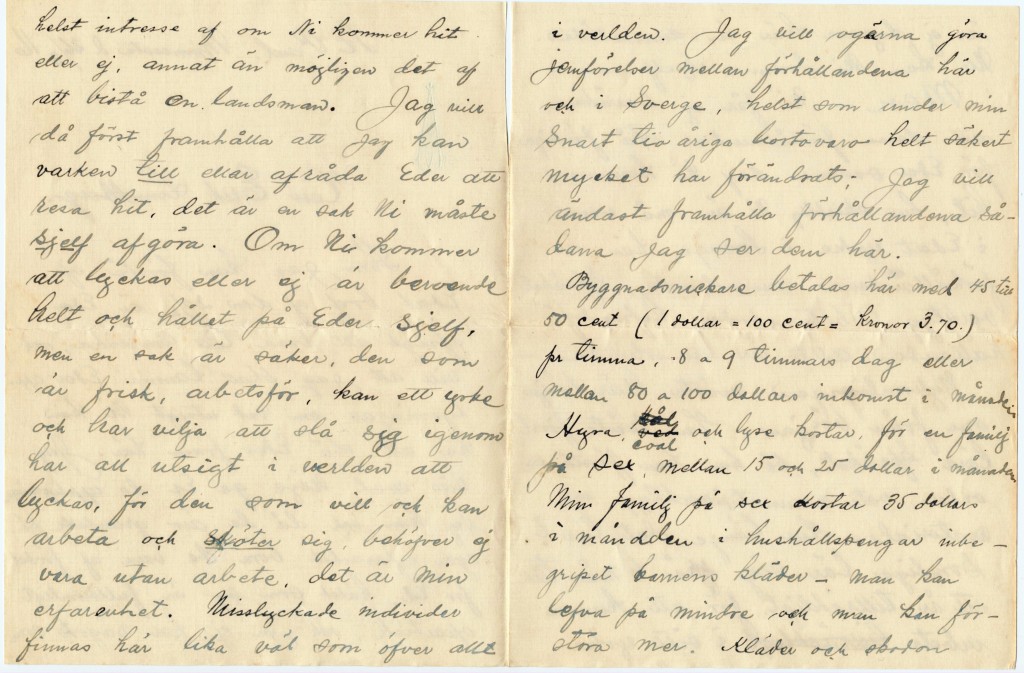 helst intresse af om Ni kommer hit
eller ej, annat än möjligen det af
att bistå en landsman. Jag vill
då först framhålla att jag kan
varken till ellar afråda Eder att
resa hit, det är en sak Ni måste
sjelf afgöra. Om Ni kommer
att lyckas eller ej är beroende
helt och hållet på Eder sjelf,
men en sak är säker, den som
är frisk, arbetsför, kan ett yrke
och har vilja att slå sig igenom
har all utsigt i verlden att
lyckas, för den som vill och kan
arbeta och sköter sig, behöfver ej
vara utan arbete, det är min
erfarenhet. Misslyckade individer
finnas här lika väl som öfver allt
i verlden. Jag vill ogärna göra
jemförelser mellan förhållandena här
och i Sverge, helst som under min
snart tio åriga bortovaro helt säkert
mycket har förändrats; Jag vill
ändast framhålla förhållandena så-
dana jag ser dem här.
Byggnadsnickare betalas här med 45 till
50 cent (1 dollar = 100 cent = kronor 3.70.)
pr timma, 8 a 9 timmars dag eller
mellan 80 a 100 dollars inkomst i månaden
Hyra, coal och lyse kostar, för en familj
på sex, mellan 15 och 25 dollar i månaden
Min familj på sex kostar 35 dollars
i måndden i hushållspengar inbe-
gripet barnens kläder – man kan
lefva på mindre och man kan för-
störa mer. Kläder och skodon